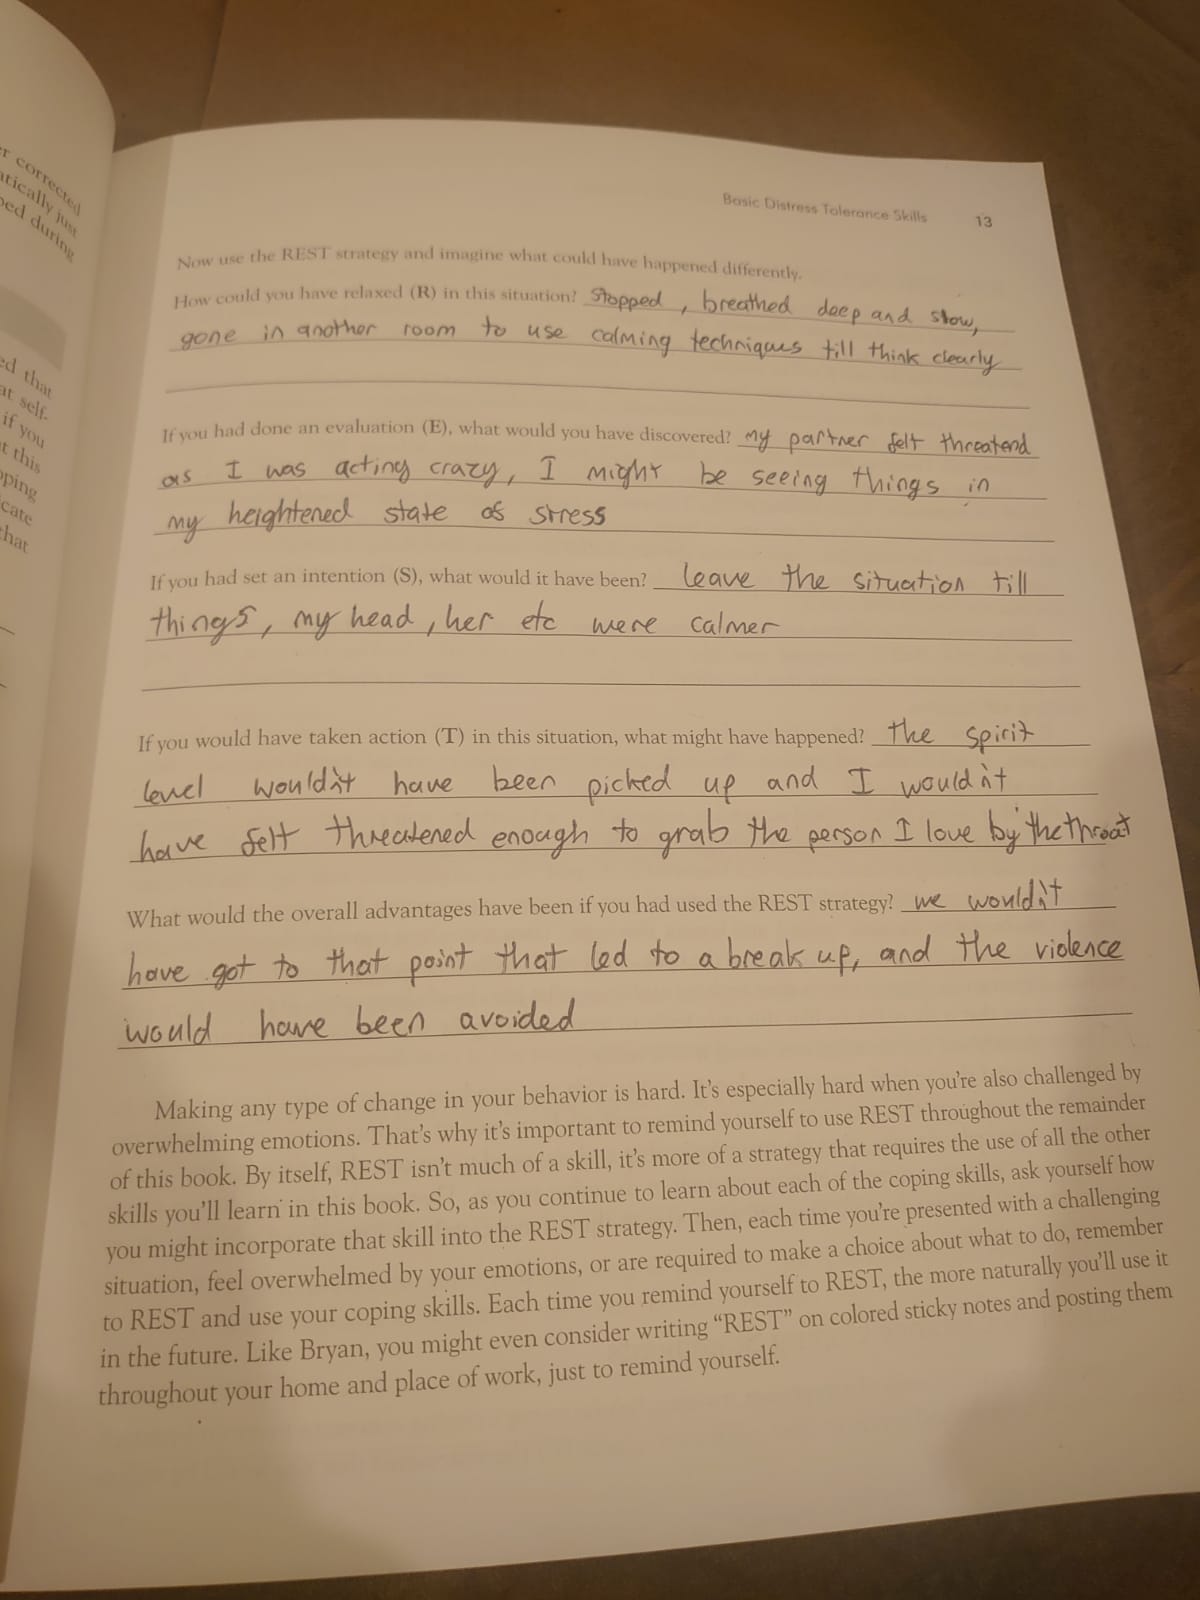 er corrected
atically just
ped during
ed that
at self-
if you
t this
pping
cate
that
Basic Distress Tolerance Skills 13
Now use the REST strategy and imagine what could have happened differently.
How could you have relaxed (R) in this situation? Stopped, breathed deep and slow,
gone in another room to use calming techniques till think clearly
If you had done an evaluation (E), what would you have discovered? my partner felt threatend
as I was acting crazy, I might be seeing things in
my heightened state of stress
If you had set an intention (S), what would it have been? leave the situation till
things, my head, her etc were calmer
If you would have taken action (T) in this situation, what might have happened? the spirit
level wouldn't have been picked up and I wouldn't
have felt threatened enough to grab the person I love by the throat
What would the overall advantages have been if you had used the REST strategy? we wouldn't
have got to that point that led to a break up, and the violence
would have been avoided
Making any type of change in your behavior is hard. It's especially hard when you're also challenged by
overwhelming emotions. That's why it's important to remind yourself to use REST throughout the remainder
of this book. By itself, REST isn't much of a skill, it's more of a strategy that requires the use of all the other
skills you'll learn in this book. So, as you continue to learn about each of the coping skills, ask yourself how
you might incorporate that skill into the REST strategy. Then, each time you're presented with a challenging
situation, feel overwhelmed by your emotions, or are required to make a choice about what to do, remember
to REST and use your coping skills. Each time you remind yourself to REST, the more naturally you'll use it
in the future. Like Bryan, you might even consider writing "REST" on colored sticky notes and posting them
throughout your home and place of work, just to remind yourself.